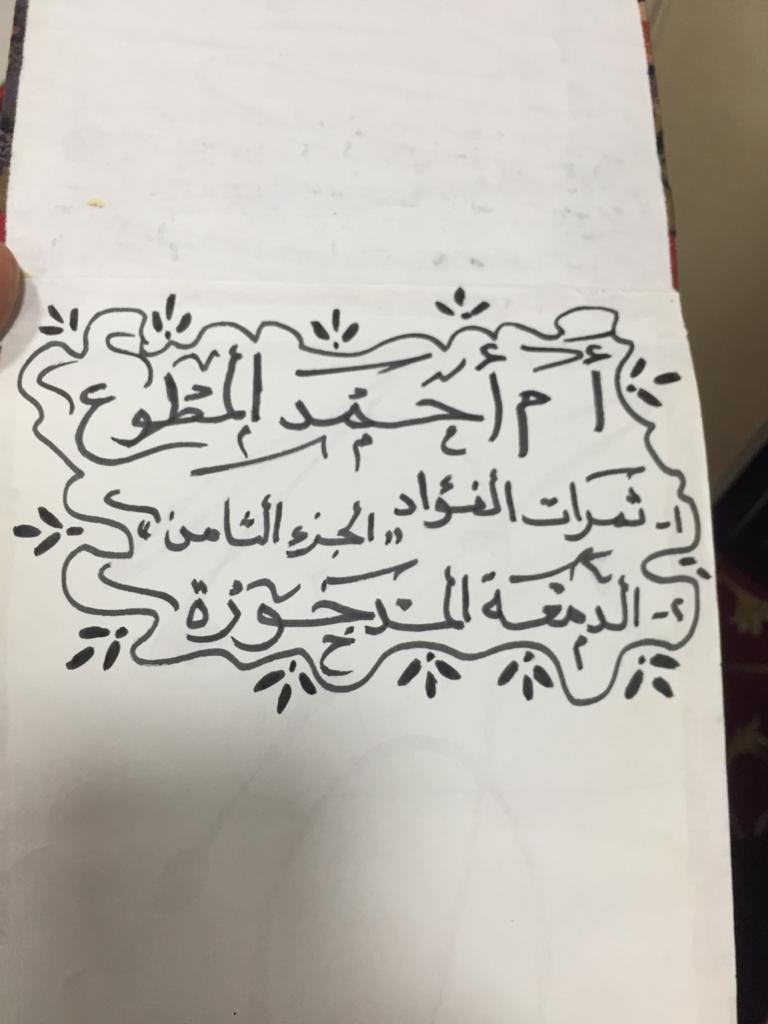 أم أحمد المطوع
١- ثمرات الفؤاد "الجزء الثامن"
٢- الدمعة المندحورة